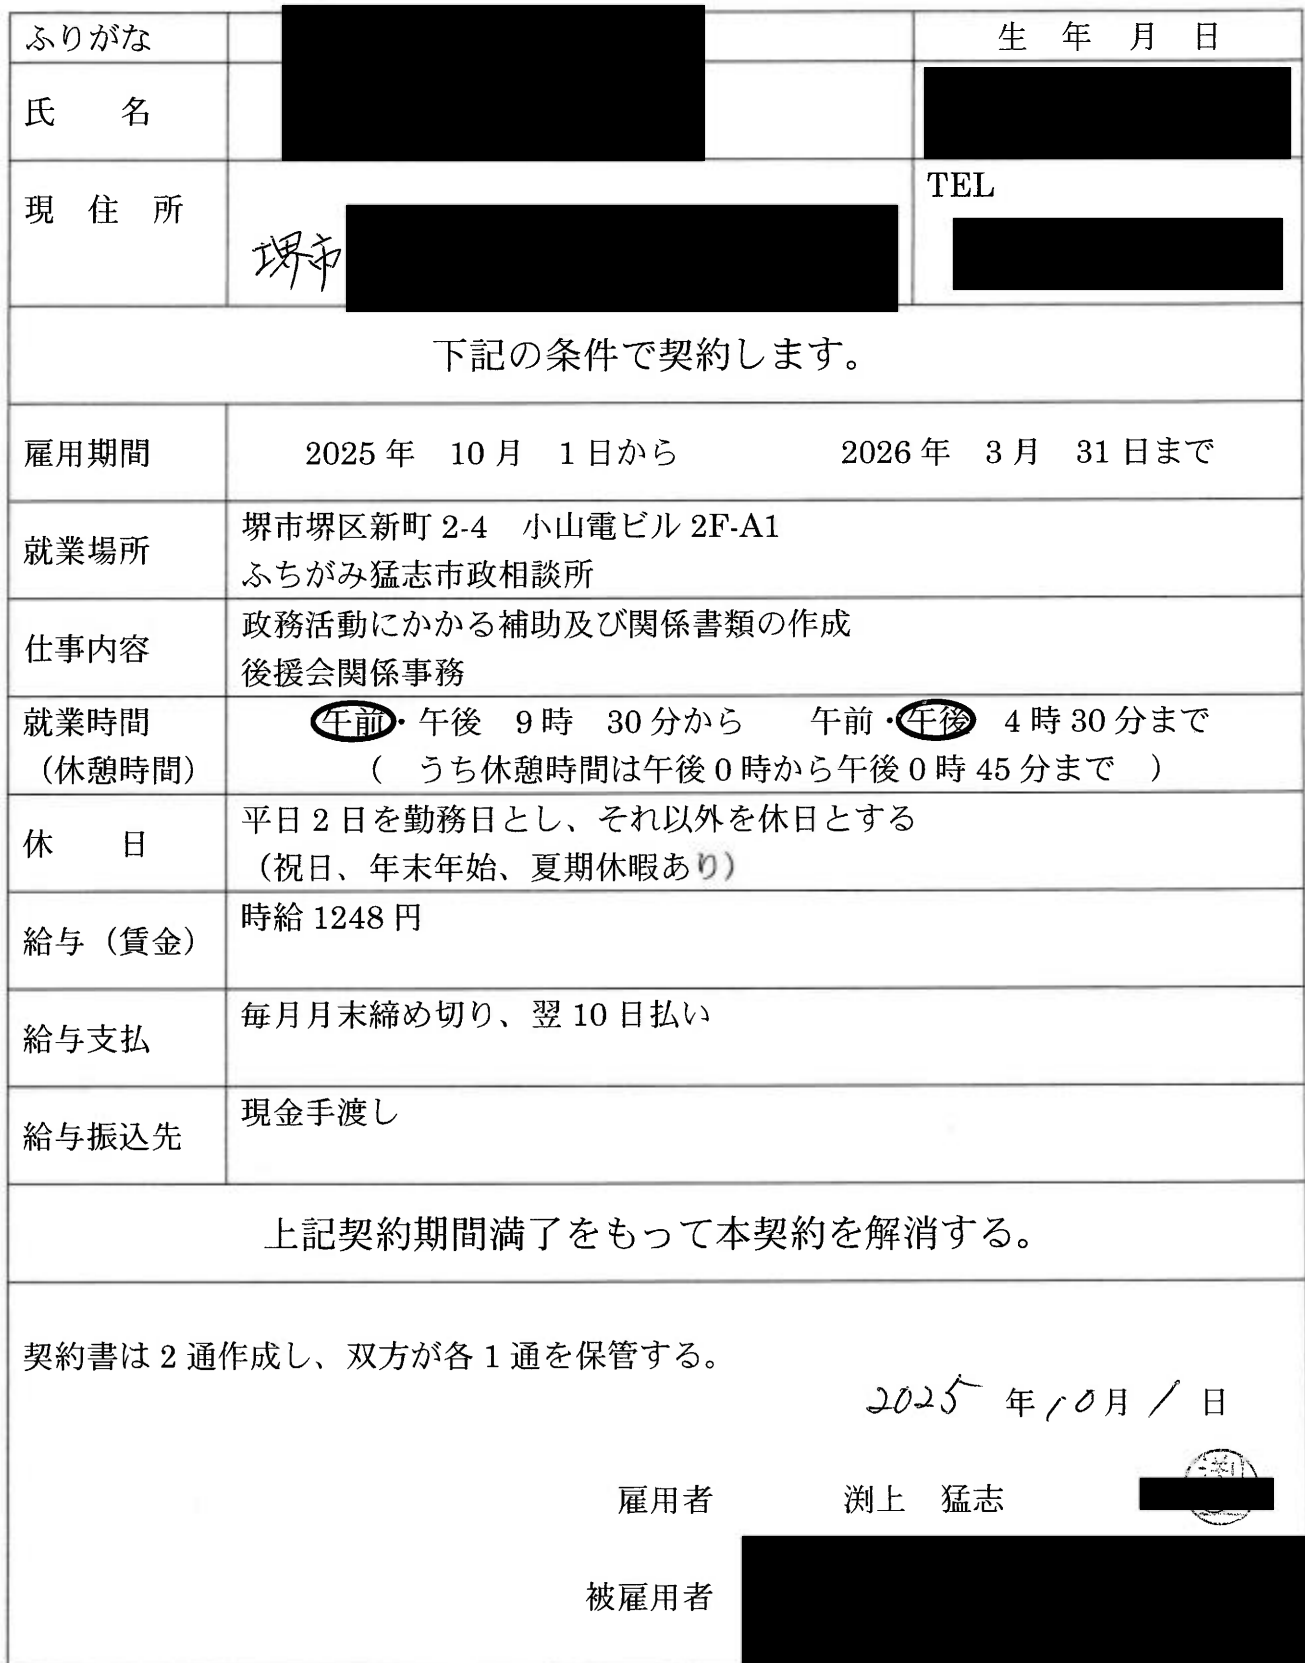 ふりがな
生 年 月 日
氏 名
現 住 所
堺市
TEL
下記の条件で契約します。
雇用期間
2025年 10月 1日から 2026年 3月 31日まで
就業場所
堺市堺区新町2-4 小山電ビル2F-A1
ふちがみ猛志市政相談所
仕事内容
政務活動にかかる補助及び関係書類の作成
後援会関係事務
就業時間
(休憩時間)
午前・午後 9時 30分から 午前・午後 4時30分まで
( うち休憩時間は午後0時から午後0時45分まで )
休 日
平日2日を勤務日とし、それ以外を休日とする
(祝日、年末年始、夏期休暇あり)
給与(賃金)
時給1248円
給与支払
毎月月末締め切り、翌10日払い
給与振込先
現金手渡し
上記契約期間満了をもって本契約を解消する。
契約書は2通作成し、双方が各1通を保管する。
2025年10月1日
雇用者 渕上 猛志
被雇用者